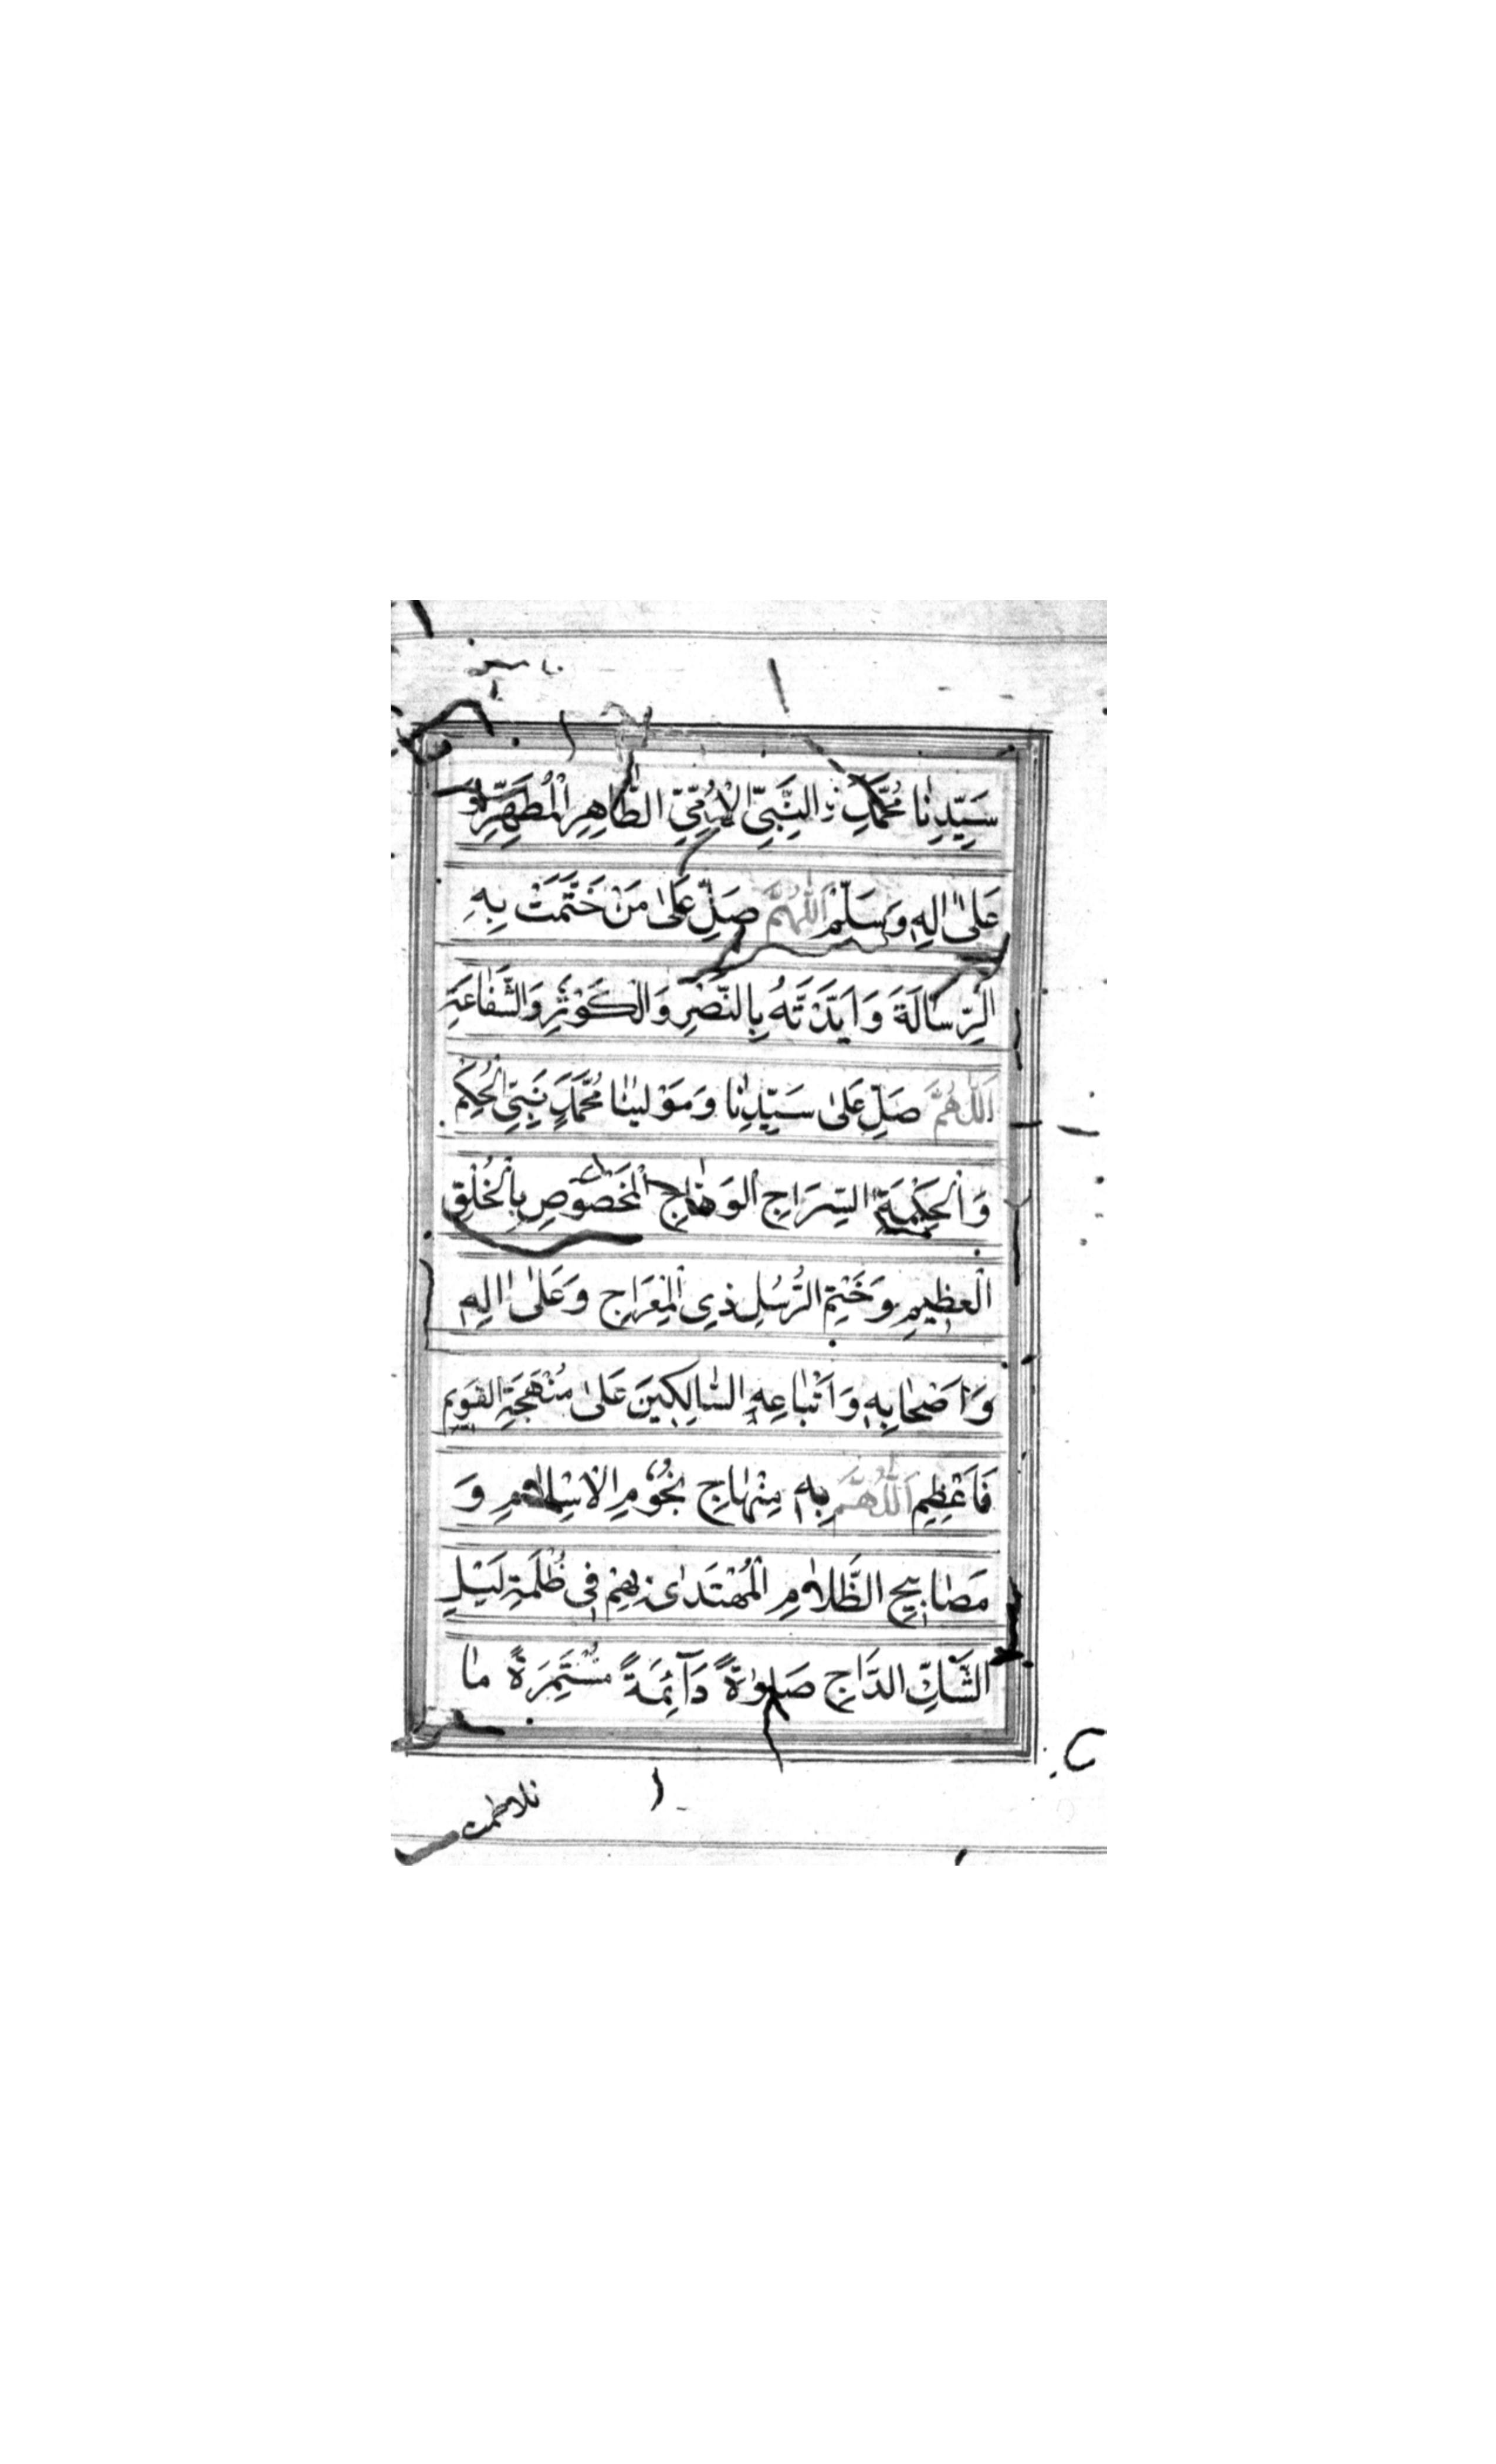 سَيِّدِنَا مُحَمَّدِنِ النَّبِيِّ الْاُمِّيِّ الطَّاهِرِ الْمُطَهَّرِ وَ
عَلٰى اٰلِهٖ وَسَلِّمْ اَللّٰهُمَّ صَلِّ عَلٰى مَنْ خَتَمْتَ بِهِ
الرِّسَالَةَ وَاَيَّدْتَهُ بِالنَّصْرِ وَالْكَوْثَرِ وَالشَّفَاعَةِ
اَللّٰهُمَّ صَلِّ عَلٰى سَيِّدِنَا وَمَوْلٰينَا مُحَمَّدٍ نَبِيِّ الْحُكْمِ
وَالْحِكْمَةِ السِّرَاجِ الْوَهَّاجِ الْمَخْصُوْصِ بِالْخُلْقِ
الْعَظِيمِ وَخَتْمِ الرُّسُلِ ذِي الْمِعْرَاجِ وَعَلٰى اٰلِهٖ
وَاَصْحَابِهٖ وَاَتْبَاعِهِ السَّالِكِينَ عَلٰى مَنْهَجِهِ الْقَوِيمِ
فَاَعْظِمِ اَللّٰهُمَّ بِهٖ مِنْهَاجِ نُجُوْمِ الْاِسْلَامِ وَ
مَصَابِيحِ الظَّلَامِ الْمُهْتَدٰى بِهِمْ فِي ظُلْمَةِ لَيْلِ
الشَّكِّ الدَّاجِ صَلٰوةً دَآئِمَةً مُسْتَمِرَّةً مَا
تلاطمت